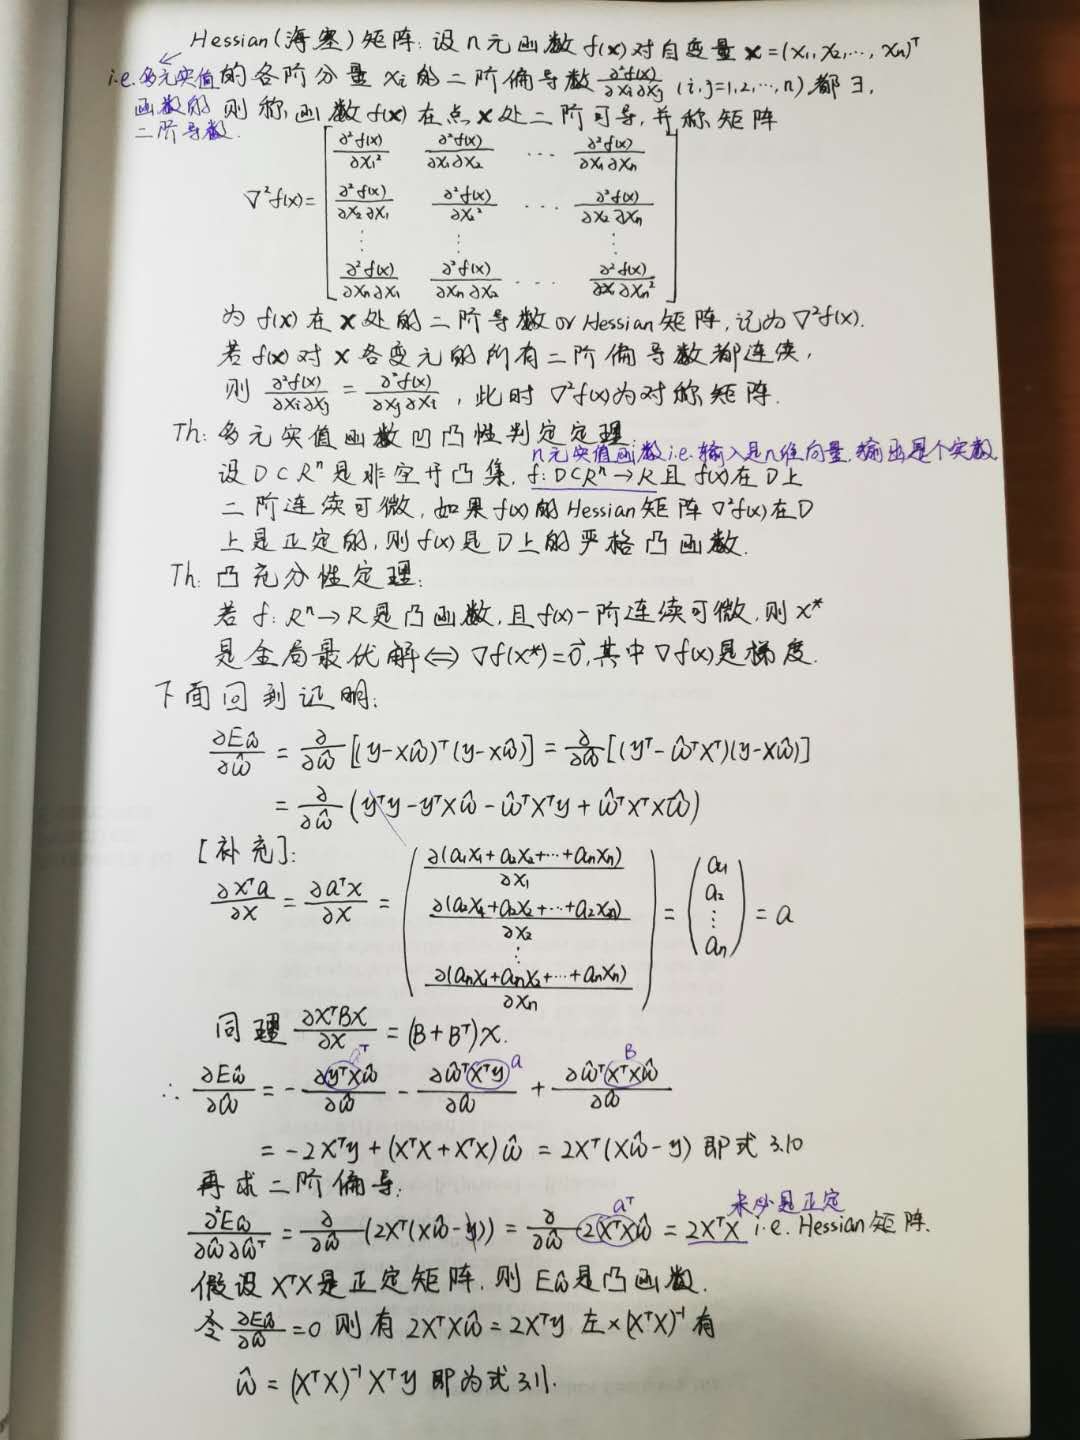 Hessian(海塞)矩阵:设n元函数f(x)对自变量x=(x₁,x₂,…,xₙ)ᵀ
i.e.多元实值函数的二阶导数.
的各阶分量xᵢ的二阶偏导数∂²f(x)/∂xᵢ∂xⱼ (i,j=1,2,…,n)都∃,
则称函数f(x)在点x处二阶可导,并称矩阵
∇²f(x)=[∂²f(x)/∂x₁² ∂²f(x)/∂x₁∂x₂ … ∂²f(x)/∂x₁∂xₙ
∂²f(x)/∂x₂∂x₁ ∂²f(x)/∂x₂² … ∂²f(x)/∂x₂∂xₙ
⋮ ⋮ ⋮
∂²f(x)/∂xₙ∂x₁ ∂²f(x)/∂xₙ∂x₂ … ∂²f(x)/∂xₙ²]
为f(x)在x处的二阶导数or Hessian矩阵,记为∇²f(x).
若f(x)对x各变元的所有二阶偏导数都连续,
则 ∂²f(x)/∂xᵢ∂xⱼ = ∂²f(x)/∂xⱼ∂xᵢ ,此时∇²f(x)为对称矩阵.
Th:多元实值函数凹凸性判定定理:
n元实值函数i.e.输入是n维向量,输出是个实数
设D⊂Rⁿ是非空开凸集,f:D⊂Rⁿ→R且f(x)在D上
二阶连续可微,如果f(x)的Hessian矩阵∇²f(x)在D
上是正定的,则f(x)是D上的严格凸函数.
Th:凸充分性定理:
若f:Rⁿ→R是凸函数,且f(x)一阶连续可微,则x*
是全局最优解⇔∇f(x*)=0⃗,其中∇f(x)是梯度.
下面回到证明:
∂Eŵ/∂ŵ = ∂/∂ŵ[(y-Xŵ)ᵀ(y-Xŵ)] = ∂/∂ŵ[(yᵀ-ŵᵀXᵀ)(y-Xŵ)]
= ∂/∂ŵ(yᵀy-yᵀXŵ-ŵᵀXᵀy+ŵᵀXᵀXŵ)
[补充]:
∂xᵀa/∂x = ∂aᵀx/∂x = (∂(a₁x₁+a₂x₂+…+aₙxₙ)/∂x₁
∂(a₂x₁+a₂x₂+…+a₂xₙ)/∂x₂
⋮
∂(aₙx₁+aₙx₂+…+aₙxₙ)/∂xₙ) = (a₁ a₂ ⋮ aₙ) = a
同理 ∂xᵀBx/∂x = (B+Bᵀ)x.
aᵀ a B
∴ ∂Eŵ/∂ŵ = -∂yᵀXŵ/∂ŵ - ∂ŵᵀXᵀy/∂ŵ + ∂ŵᵀXᵀXŵ/∂ŵ
= -2Xᵀy+(XᵀX+XᵀX)ŵ = 2Xᵀ(Xŵ-y) 即式3.10
再求二阶偏导:
aᵀ 未必是正定
∂²Eŵ/∂ŵ∂ŵᵀ = ∂/∂ŵ(2Xᵀ(Xŵ-y)) = ∂/∂ŵ 2XᵀXŵ = 2XᵀX i.e. Hessian矩阵.
假设XᵀX是正定矩阵,则Eŵ是凸函数.
令 ∂Eŵ/∂ŵ=0 则有 2XᵀXŵ=2Xᵀy 左×(XᵀX)⁻¹有
ŵ=(XᵀX)⁻¹Xᵀy 即为式3.11.